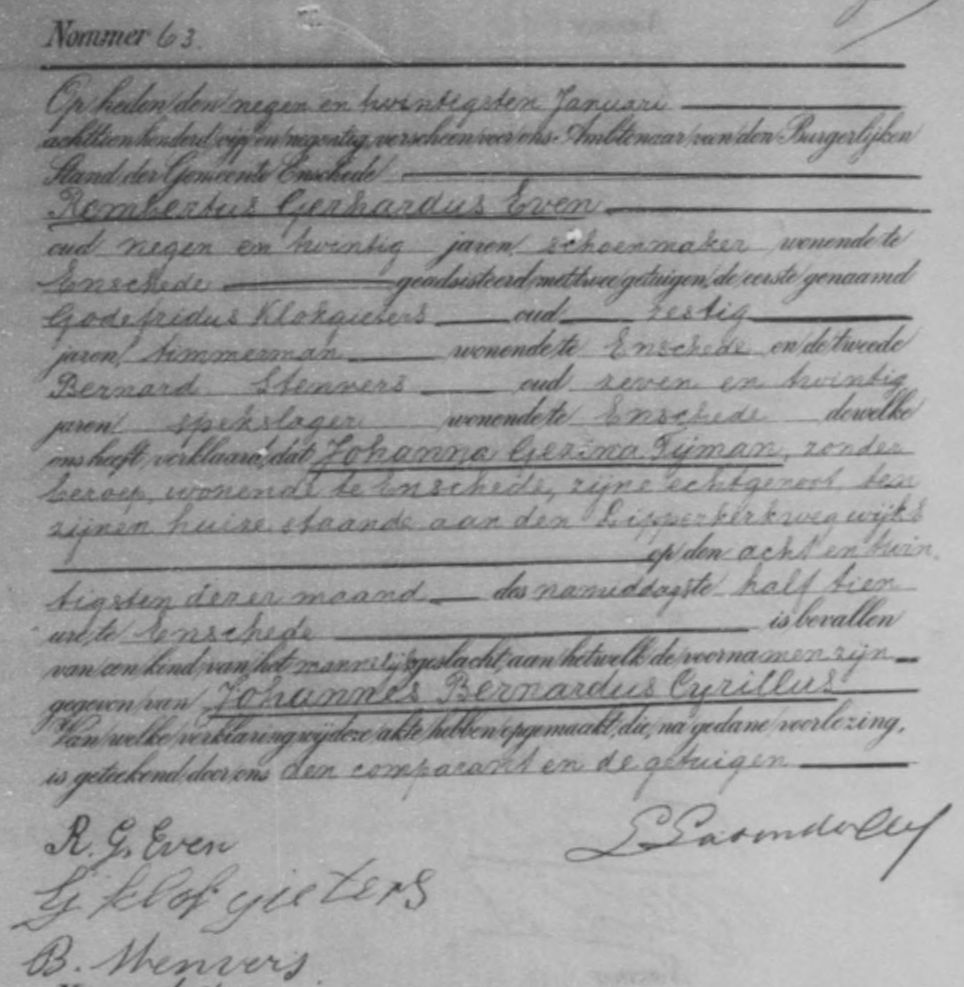 Nommer 63.
Op heden den negen en twintigsten Januari
achttienhonderd vijf en negentig, verscheen voor ons Ambtenaar van den Burgerlijken
Stand der Gemeente Enschede
Rembertus Gerhardus Even
oud negen en twintig jaren, schoenmaker, wonende te
Enschede geadsisteerd met twee getuigen, de eerste genaamd
Godefridus Klokgieters oud zestig
jaren, timmerman wonende te Enschede en de tweede
Bernard Stenvers oud zeven en twintig
jaren spekslager wonende te Enschede dewelke
ons heeft verklaard, dat Johanna Gezina Tijman, zonder
beroep, wonende te Enschede, zijne echtgenoot, ten
zijnen huize staande aan den Lipperkerkweg wijk S
op den acht en twin
tigsten dezer maand des namiddags te half tien
ure te Enschede is bevallen
van een kind van het mannelijk geslacht, aan hetwelk de voornamen zijn
gegeven van Johannes Bernardus Cyrillus
Van welke verklaring wij deze akte hebben opgemaakt, die, na gedane voorlezing,
is geteekend door ons den comparant en de getuigen
R. G. Even
G Klokgieters
B. Stenvers